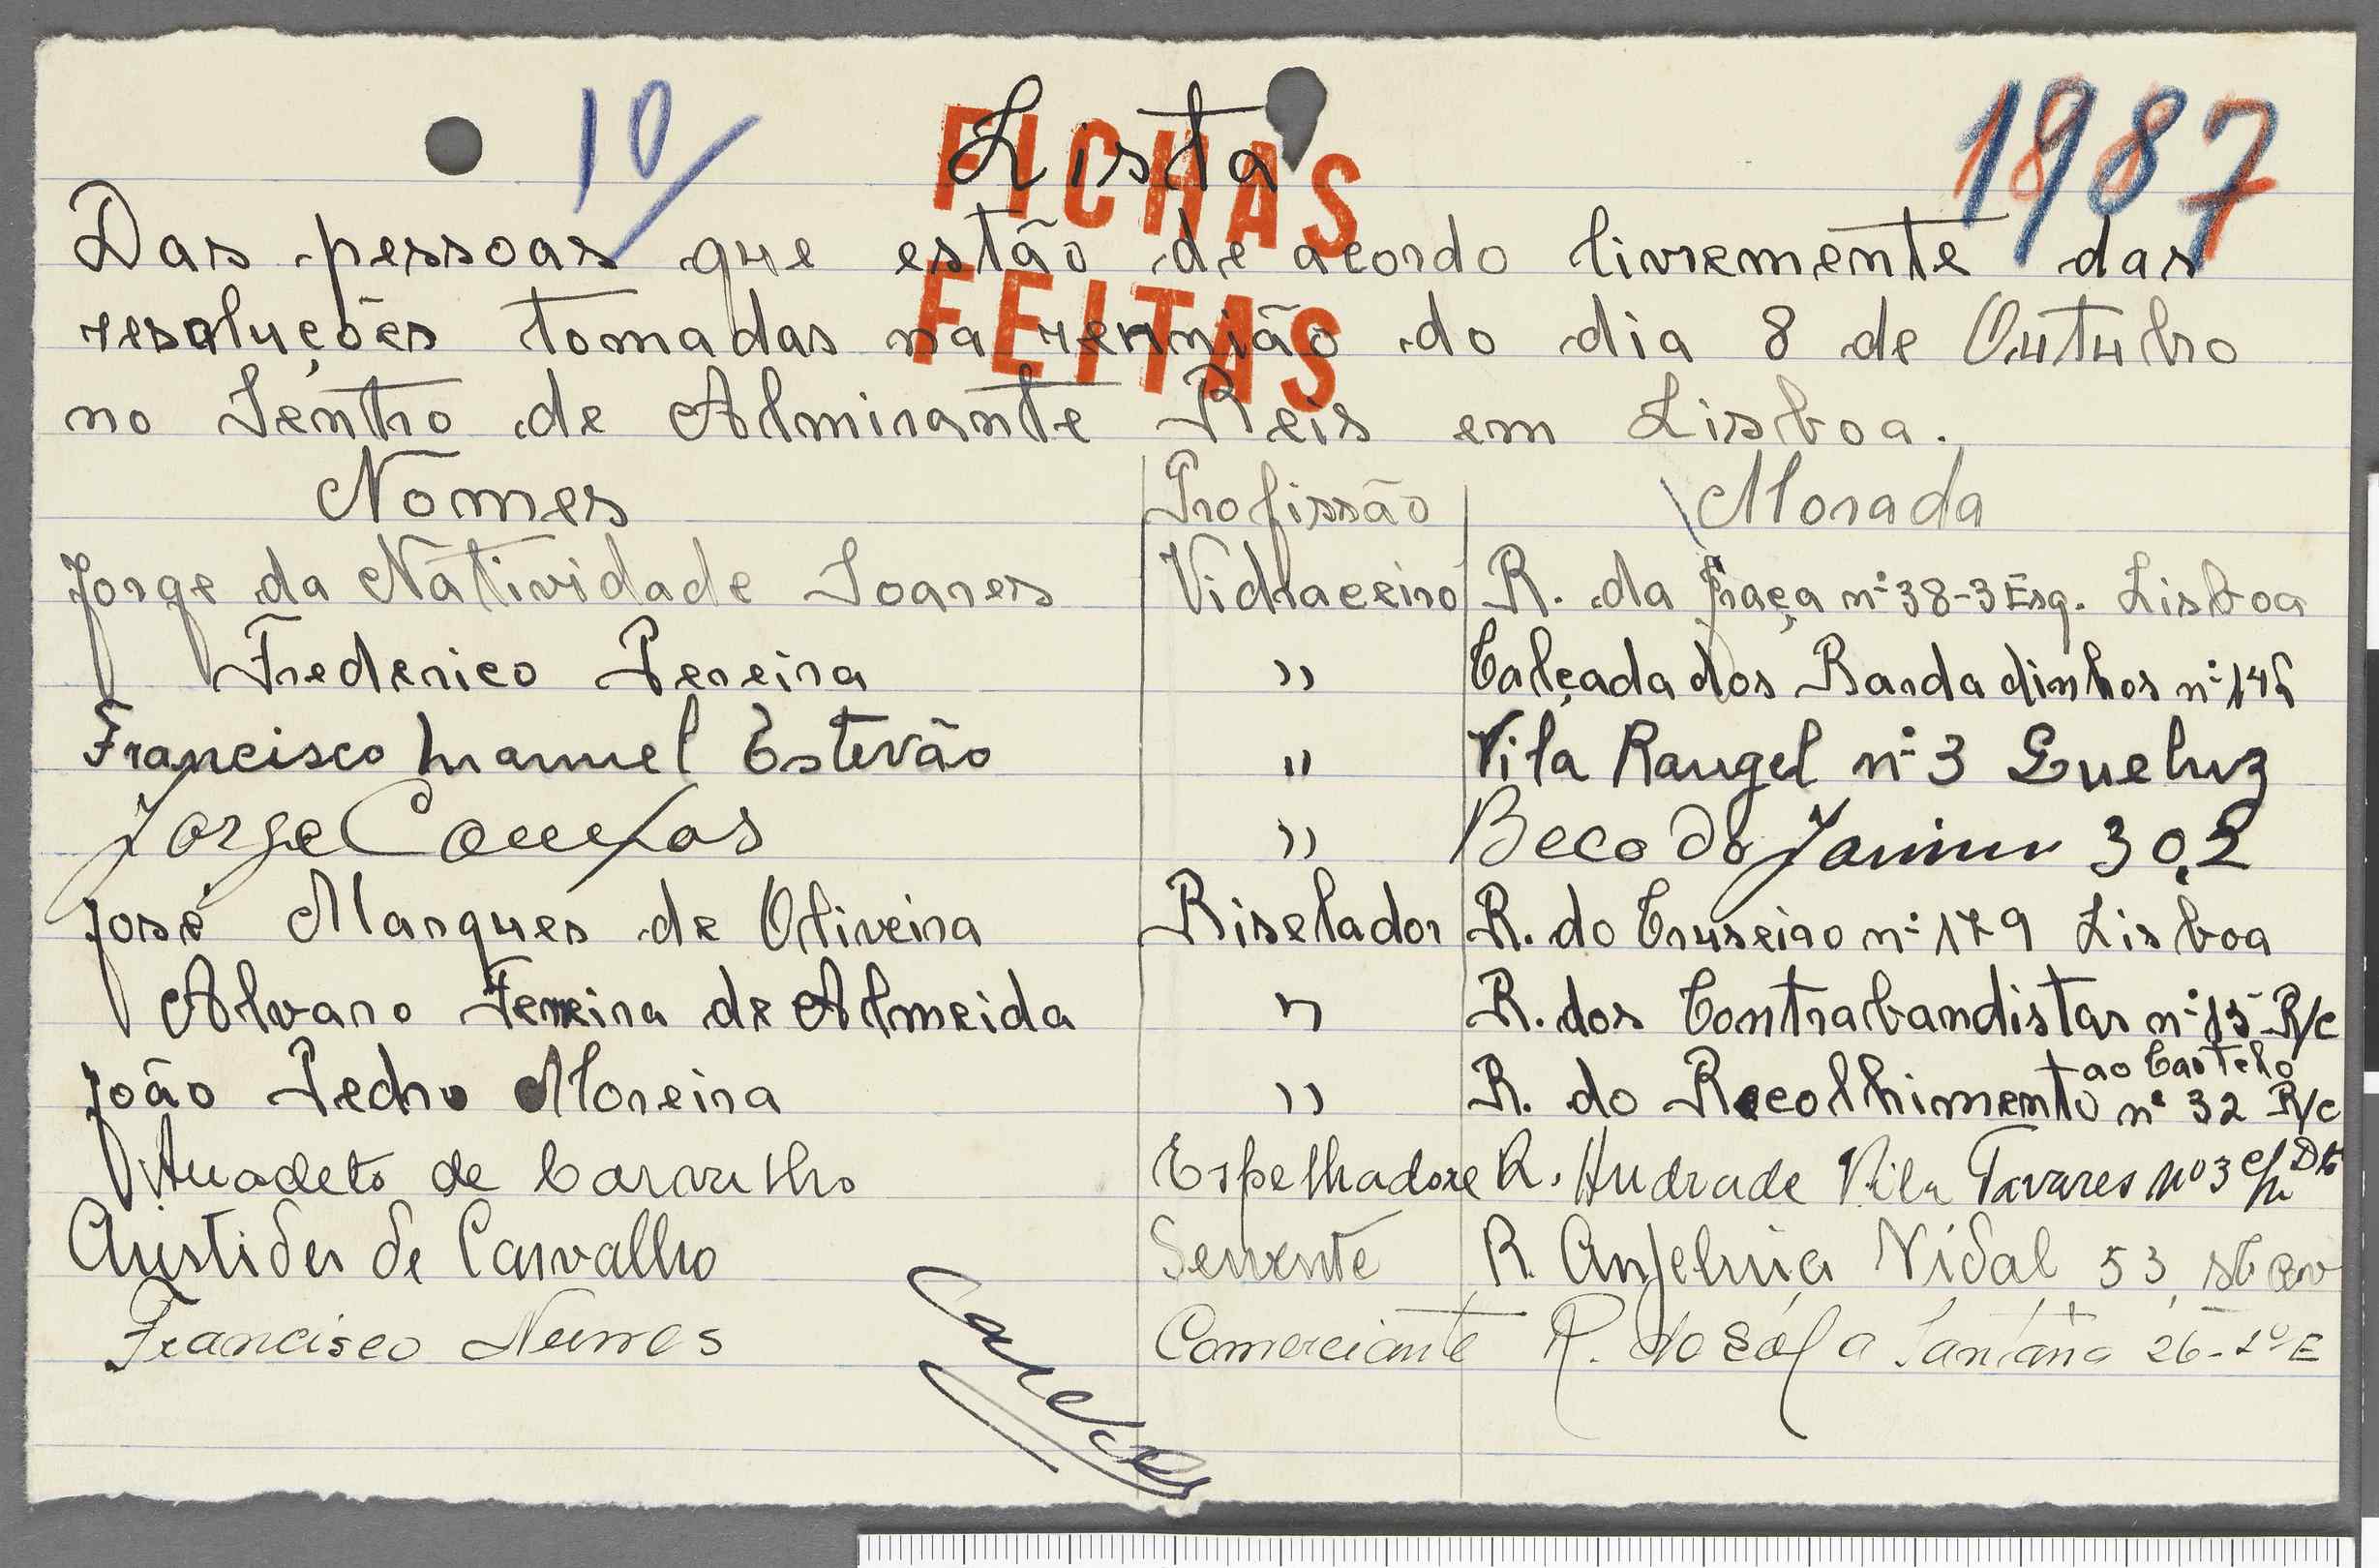 10/
Lista
1987
FICHAS
FEITAS
Das pessoas que estão de acordo livremente das
resoluções tomadas na reunião do dia 8 de Outubro
no Sentro de Almirante Reis em Lisboa.
Nomes Profissão Morada
Jorge da Natividade Soares Vidraceiro R. da Graça nº 38-3 Esq. Lisboa
Frederico Pereira " Calçada dos Bardadinhos nº 146
Francisco Manuel Estevão " Vila Rangel nº 3 Queluz
Jorge Campos " Beco do 30,2
José Marques de Oliveira Biselador R. do Cruseiro nº 179 Lisboa
Alvaro Ferreira de Almeida " R. dos Contrabandistas nº 15 R/c
João Pedro Moreira " R. do Recolhimento ao Castelo nº 32 R/c
de Carvalho Espelhadore R. Andrade Vila Tavares nº 3 Dtº
Aristides de Carvalho Servente R. Anjelina Vidal 53,
Francisco Nunes Comerciante R. do Sol a Santana 26-1º E